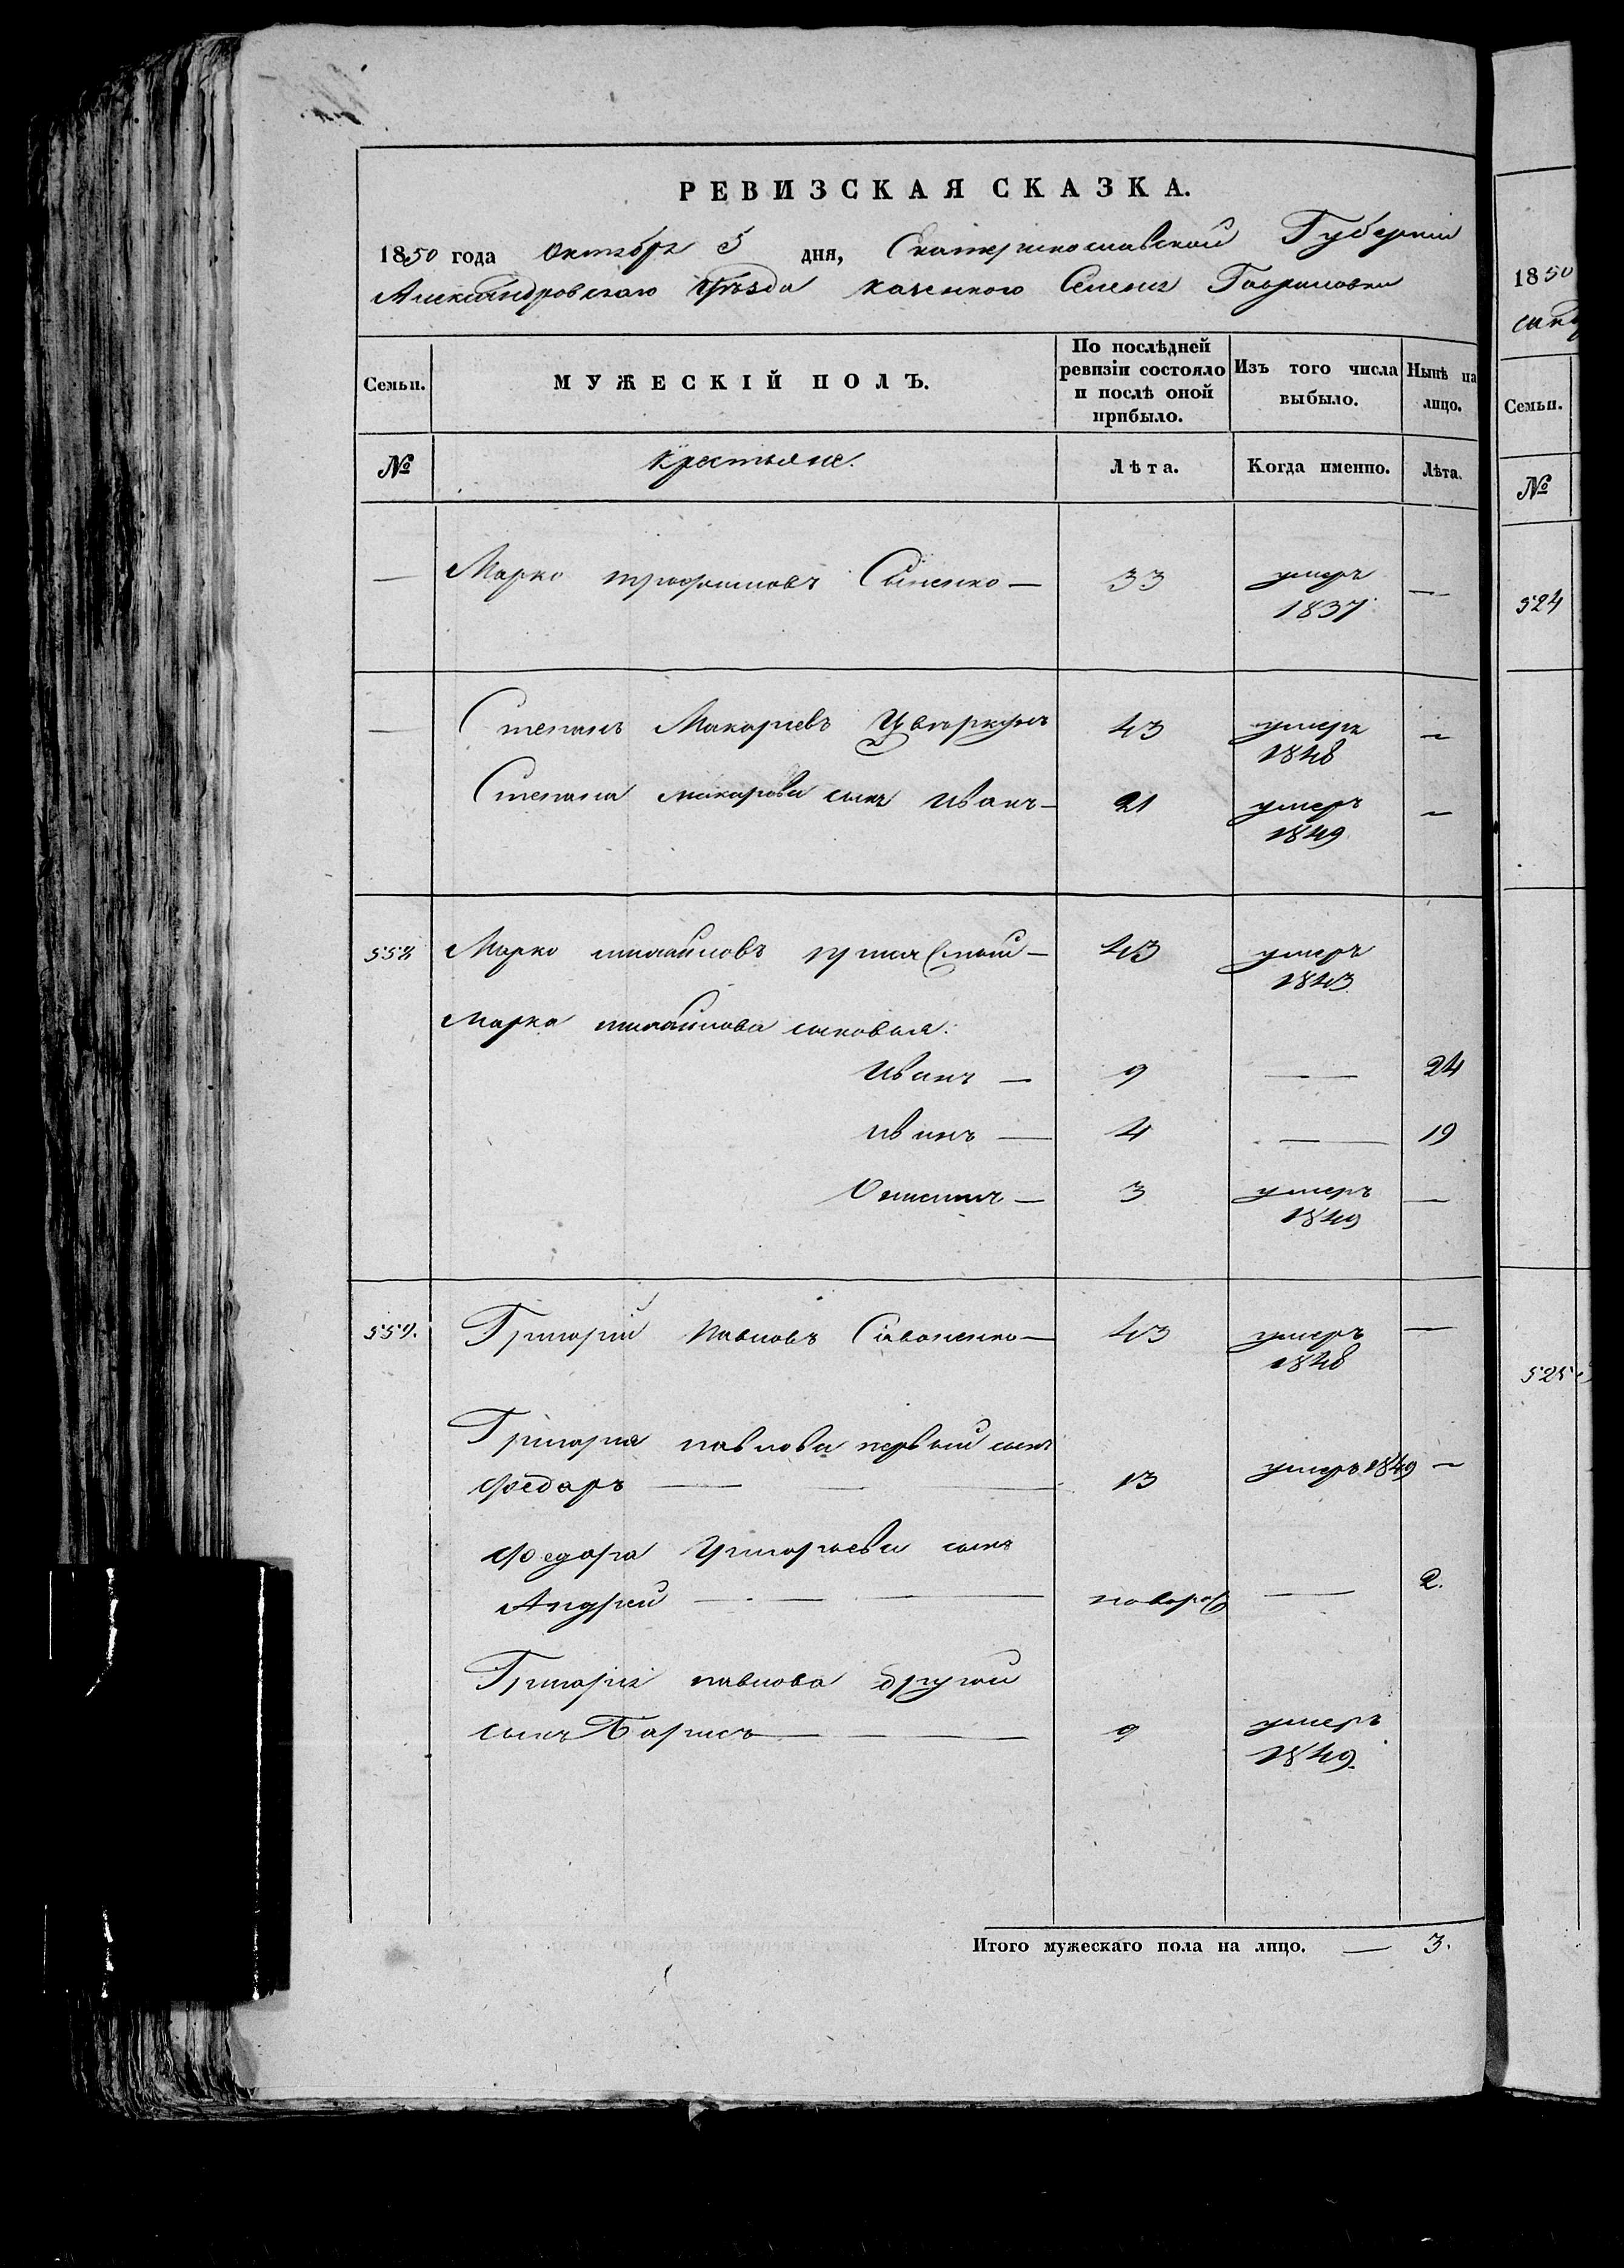 РЕВИЗСКАЯ СКАЗКА.
1850 года Октября 5 дня, Екатеринославской Губернии
Александровскаго Уѣзда казеннаго Селенія Гавриловки
Семьи. МУЖЕСКІЙ ПОЛЪ. По послѣдней ревизіи состояло и послѣ оной прибыло. Изъ того числа выбыло. Нынѣ на лицо.
№ Крестьяне. Лѣта. Когда именно. Лѣта.
— Марко трофимовъ — 33 умеръ 1837 —
— Степанъ Макаріевъ Цвѣркунъ 43 умеръ 1848 —
Степана макарова сынъ Иванъ — 21 умеръ 1849 —
558 Марко михайловъ — 43 умеръ 1843
Марка михайлова сыновья:
Иванъ — 9 — 24
иванъ — 4 — 19
— 3 умеръ 1849 —
559. Григорій Павловъ Савоненко — 43 умеръ 1848 —
Григорія павлова первый сынъ
Федоръ — 13 умеръ 1849 —
Федора Григорьева сынъ
Андрей — новорож — 2.
Григорія павлова другой
сынъ Борисъ — 9 умеръ 1849.
Итого мужескаго пола на лицо. — 3.
1850
Семьи.
№
524
525